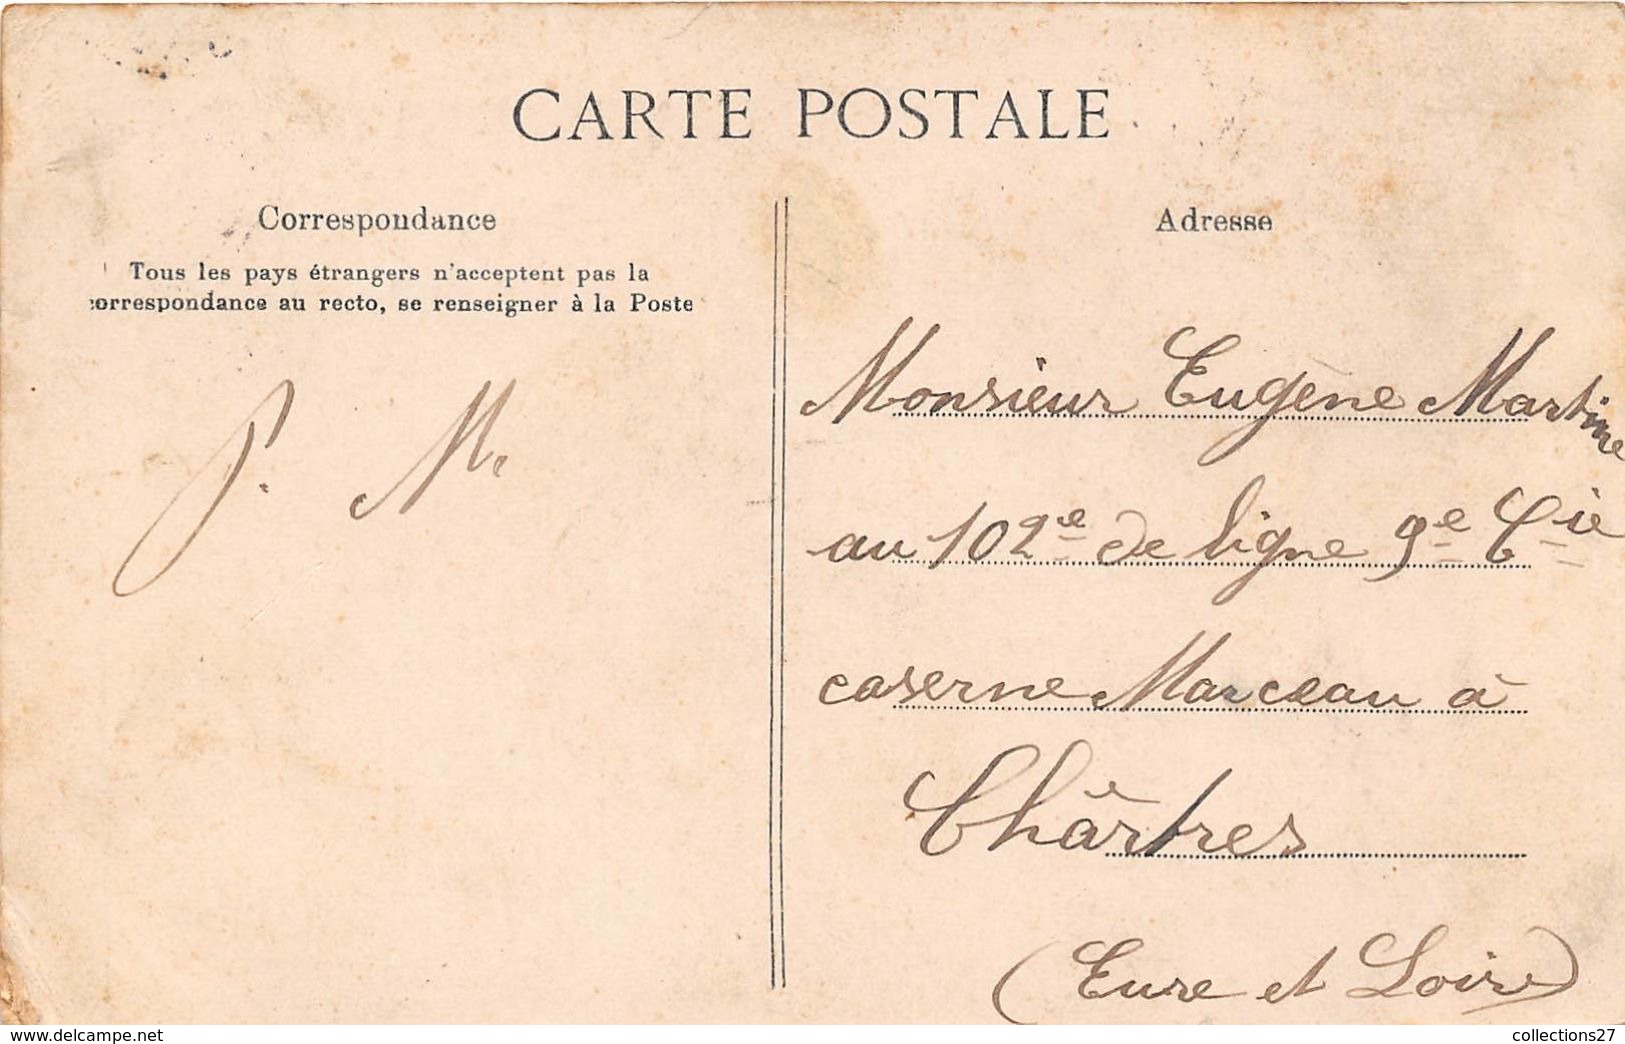 CARTE POSTALE
Correspondance
Tous les pays étrangers n'acceptent pas la
correspondance au recto, se renseigner à la Poste
P. M.
Adresse
Monsieur Eugène Martine
au 102e de ligne 9e Cie
caserne Marceau à
Chârtres
(Eure et Loire)
https://www.delcampe.net
collections27